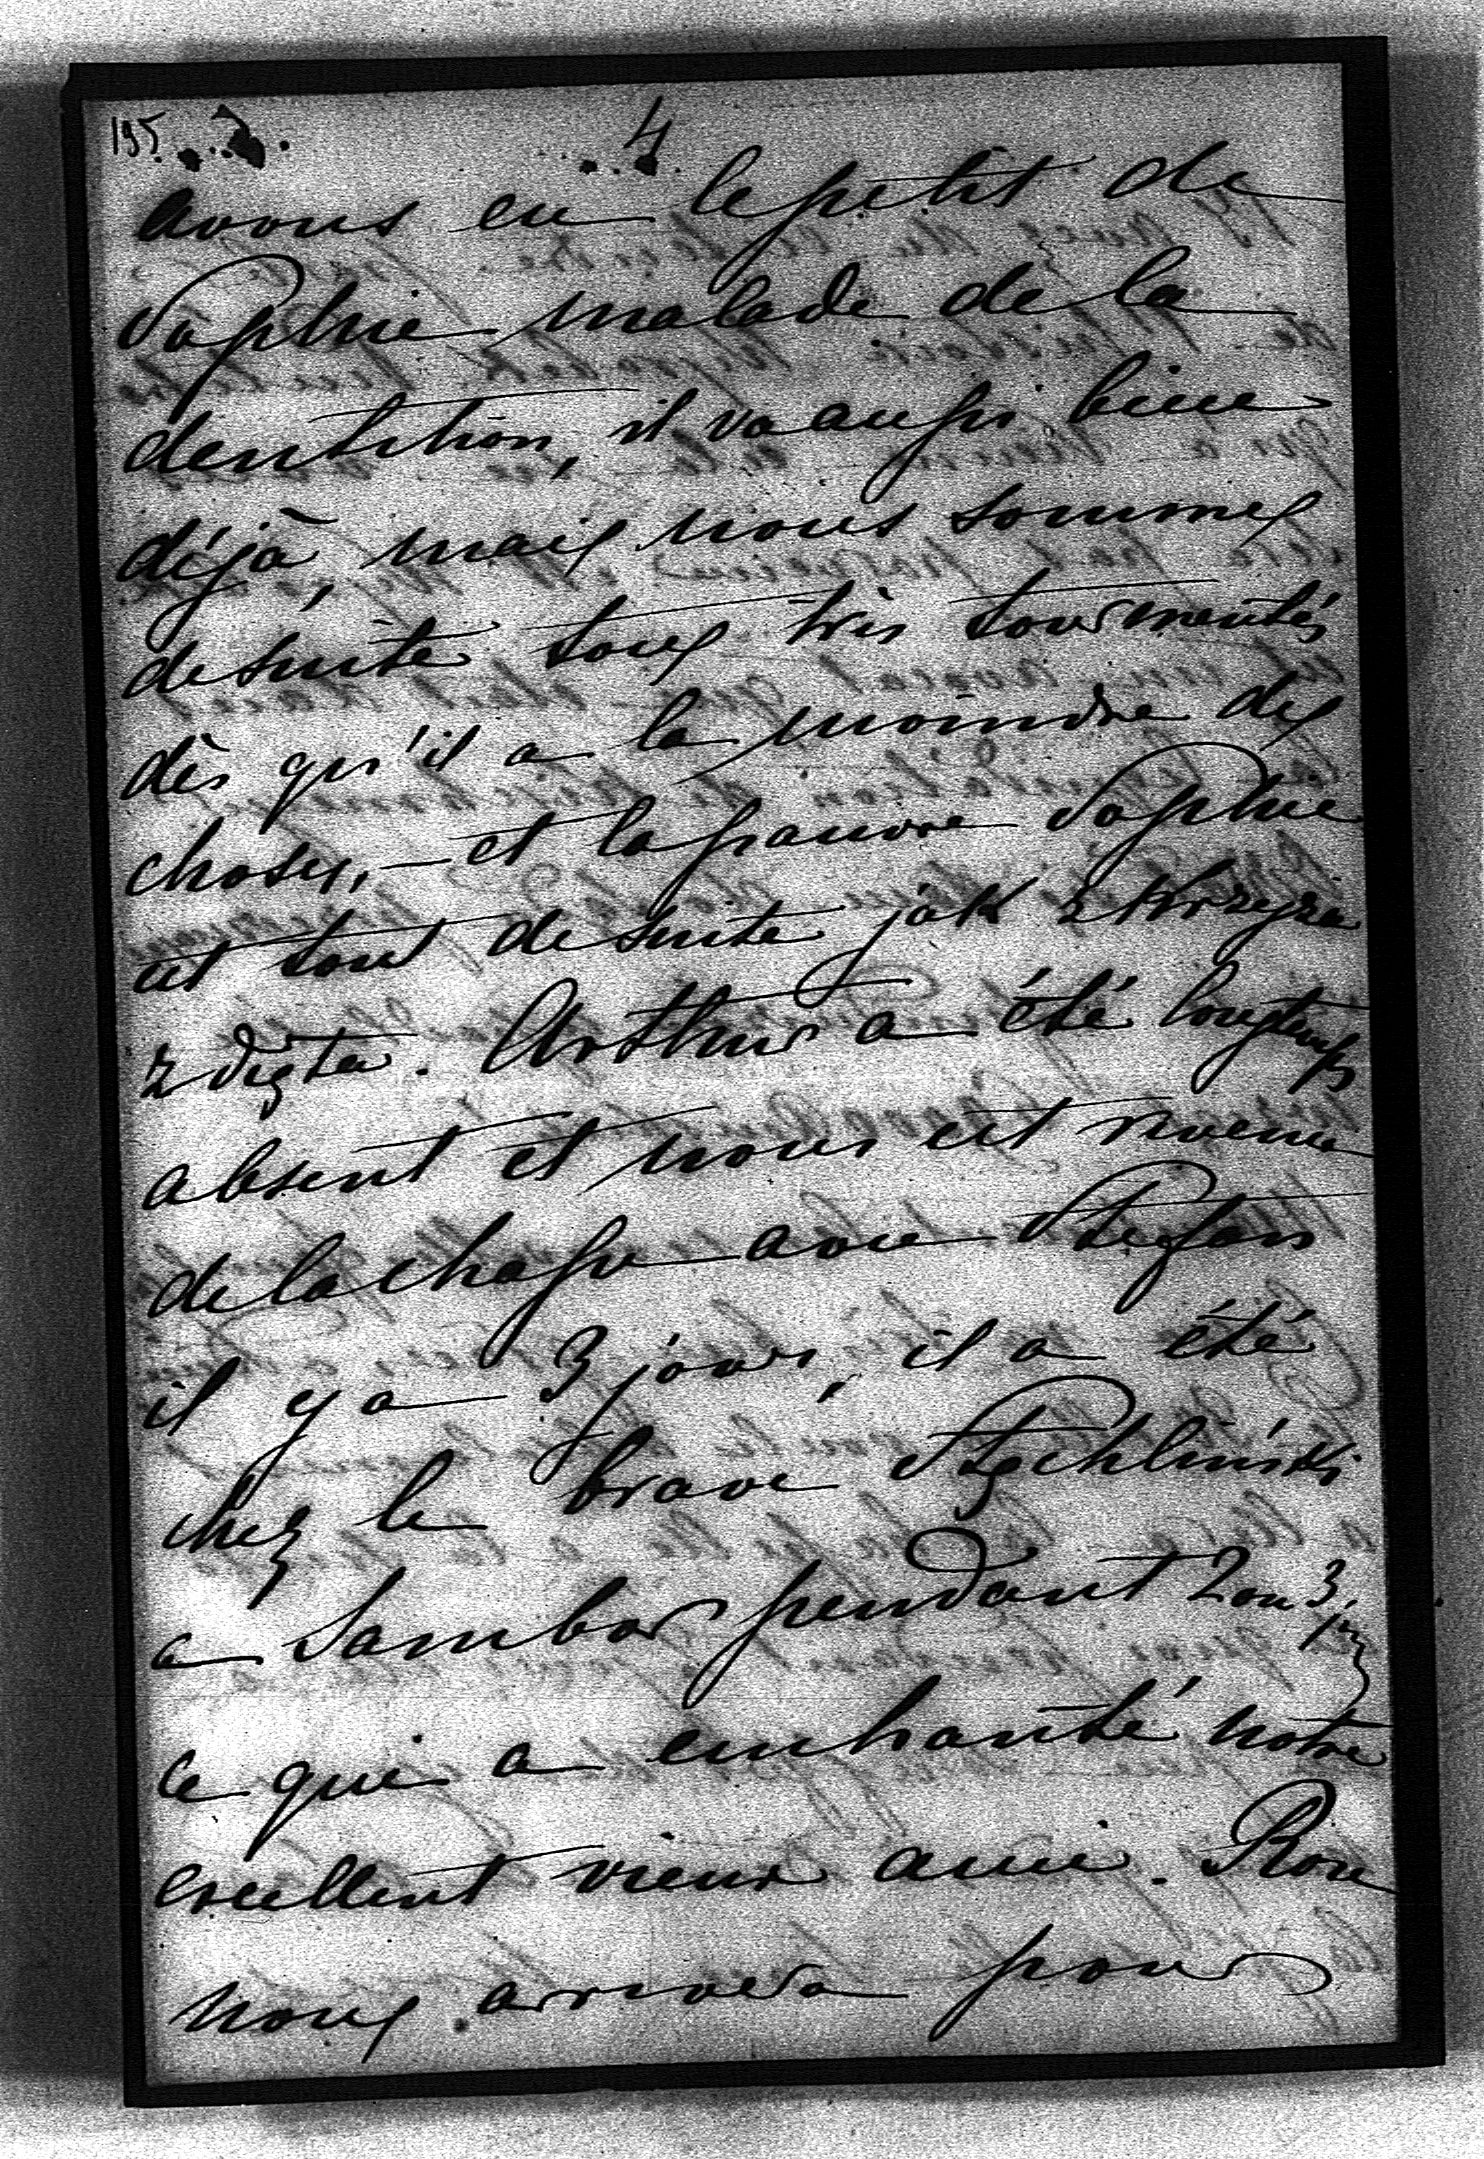 195
4
avons eu le petit de
Sophie malade de la
dentition, il va aussi bien
déjà, mais nous sommes
de suite tous très tourmentés
dès qu'il a la moindre des
choses, – et la pauvre Sophie
est tout de suite jak z krzyża
zdięta. Arthur a été longtemps
absent et nous est revenu
de la chasse avec Stefan
il y a 3 jours, il a été
chez le brave
a Sambor pendant 2 ou 3 jrs
ce qui a enchanté notre
excellent vieux ami. Rose
nous arrivera pour